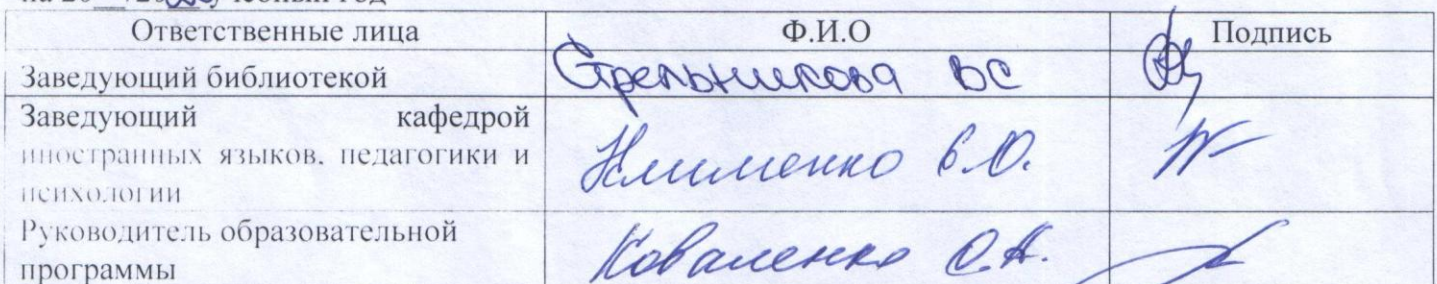 Ответственные лица Ф.И.О Подпись
Заведующий библиотекой Стрельникова ВС
Заведующий кафедрой
иностранных языков, педагогики и
психологии Клименко Е.О.
Руководитель образовательной
программы Коваленко О.А.